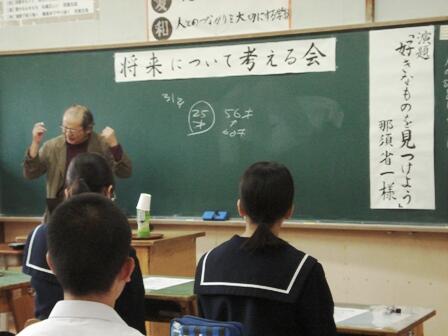 和
人とのつながりを大切にする学
将来について考える会
演題
「好きなものを見つけよう」
那須省一様
25才
56才